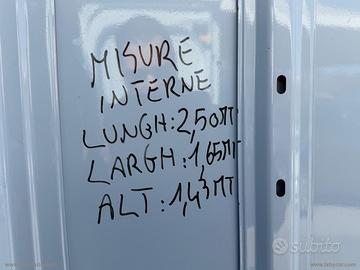 MISURE
INTERNE
LUNGH:2,50MT
LARGH:1,65MT
ALT:1,43MT
subito